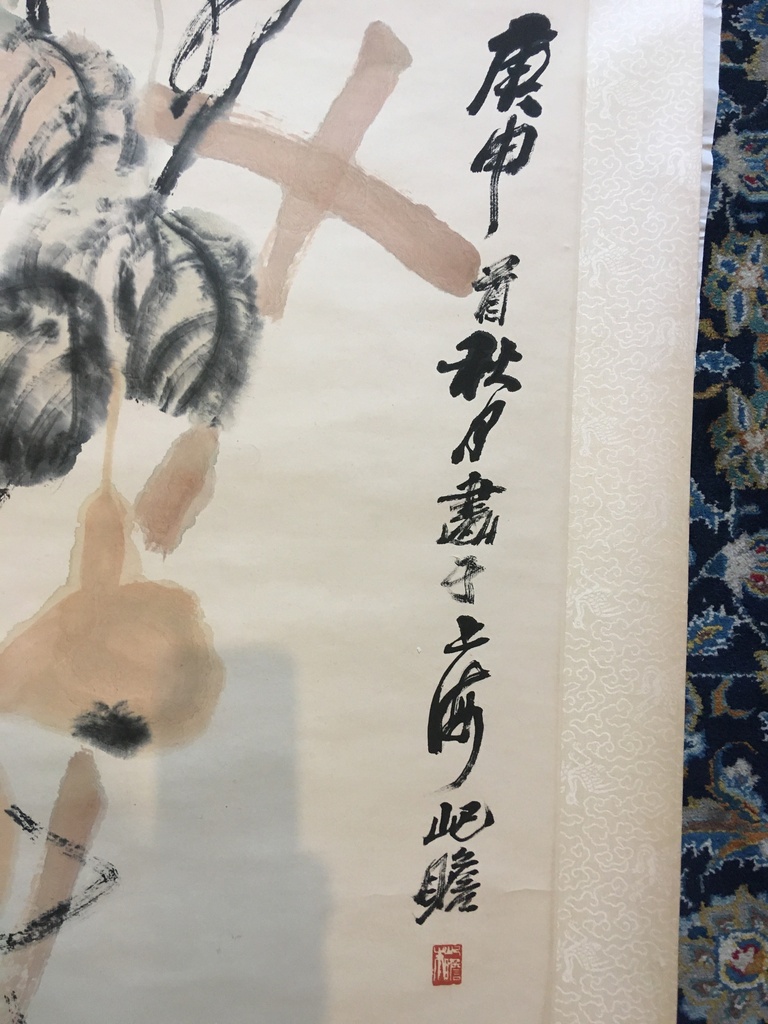 庚申首秋月畫于上海屺瞻